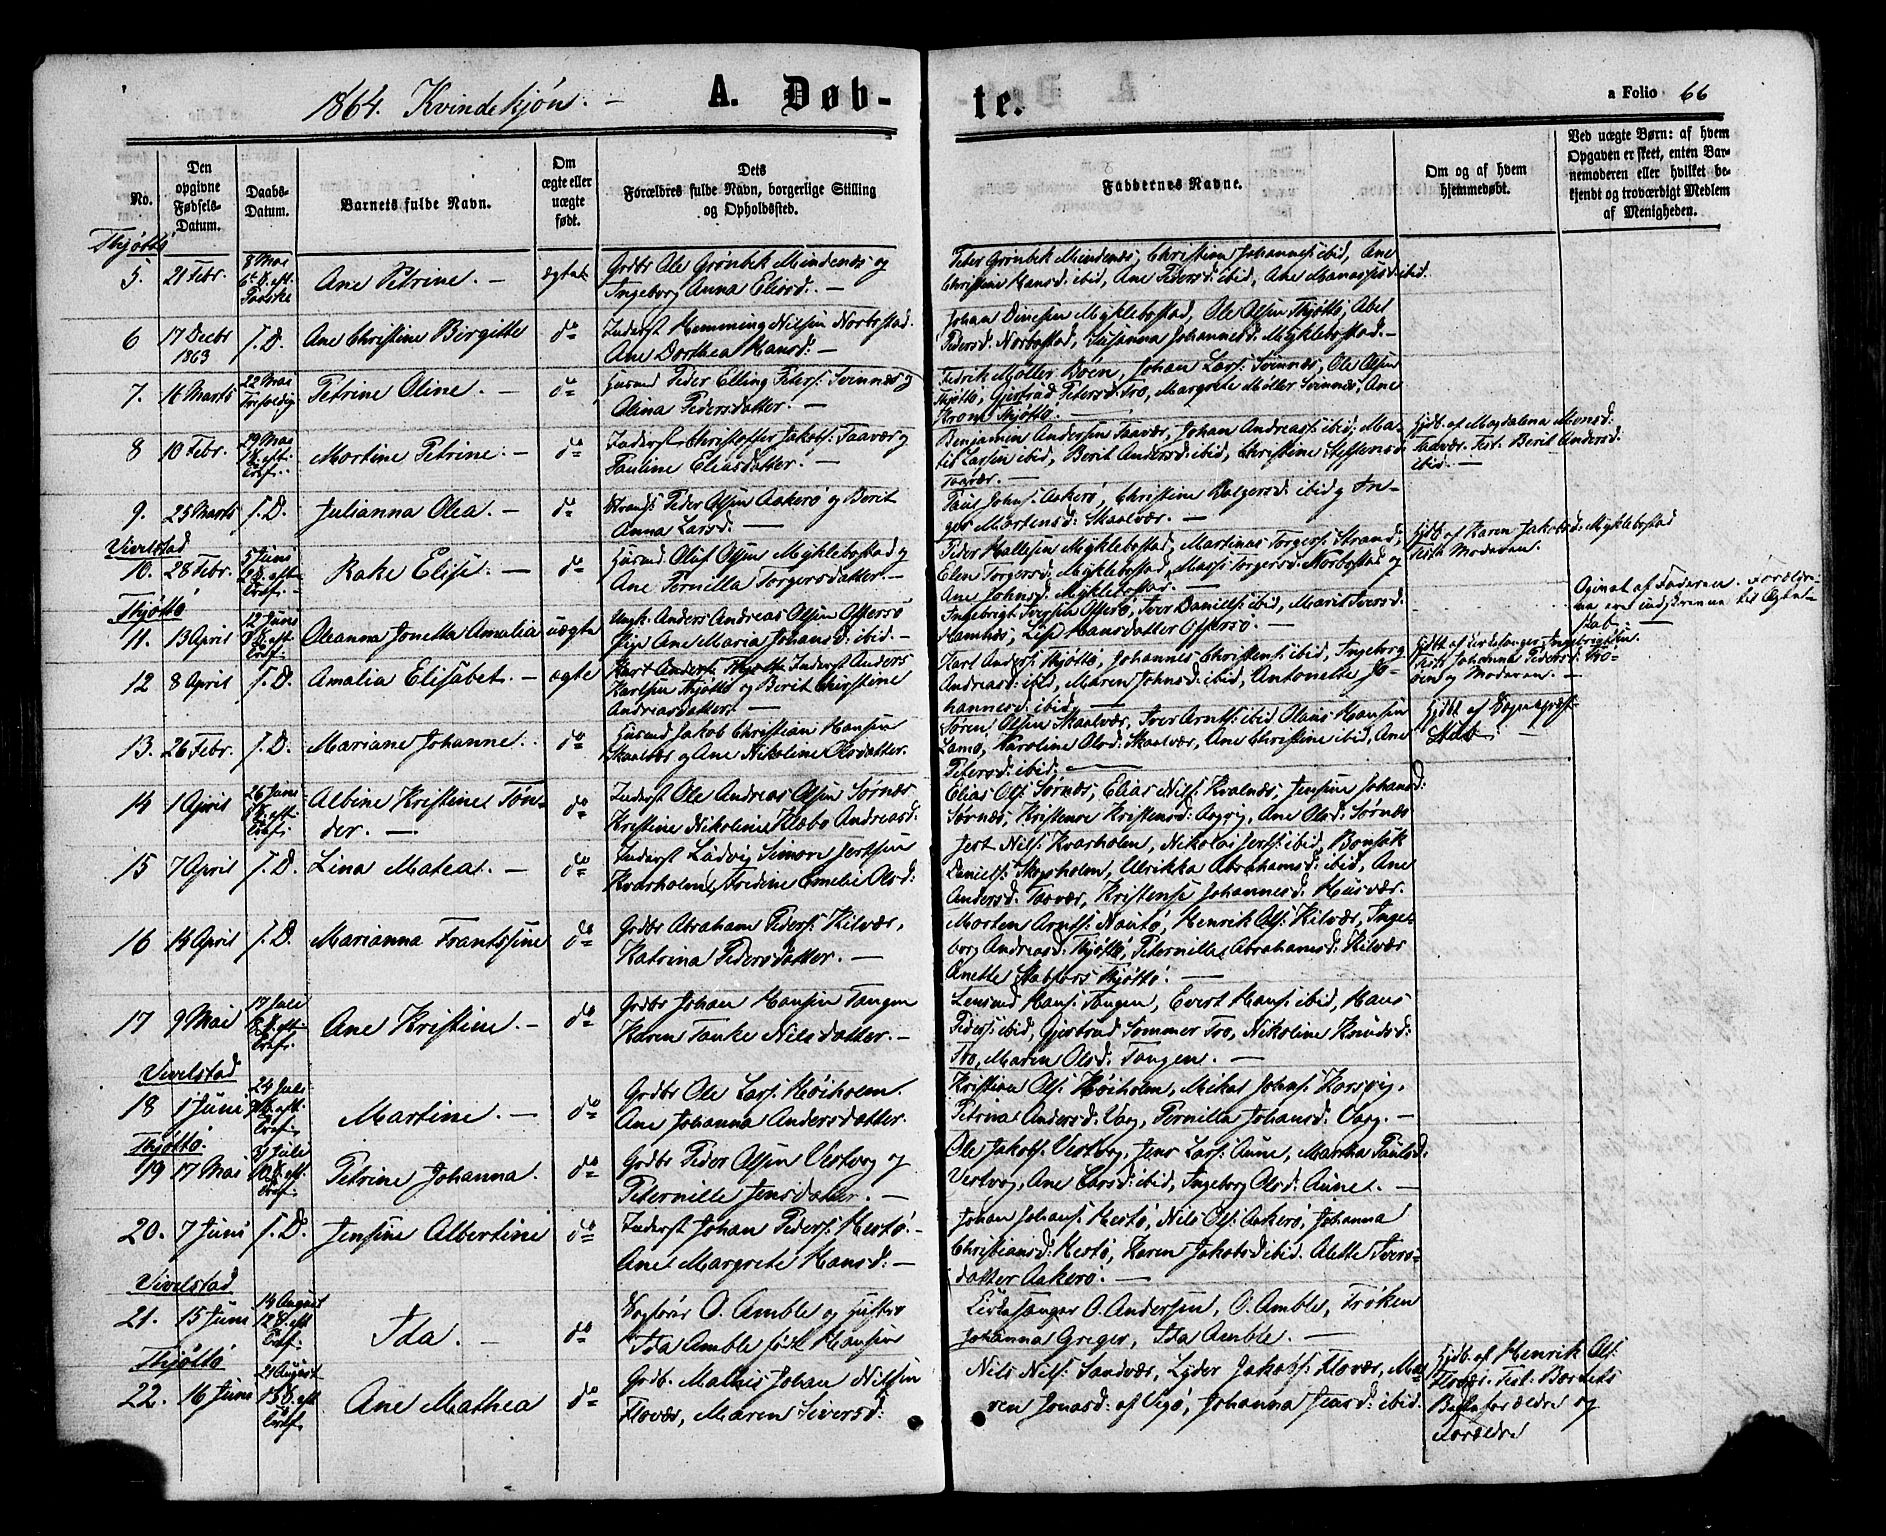 1864. Kvindekjøn. –
A. Døb-
te.
a Folio 66
No.
Den
opgivne
Fødsels-
Datum.
Daabs-
Datum.
Barnets fulde Navn.
Om
ægte eller
uægte
født.
Dets
Forældres fulde Navn, borgerlige Stilling
og Opholdssted.
Faddernes Navne.
Om og af hvem
hjemmedøbt.
Ved uægte Børn: af hvem
Opgaven er skeet, enten Bar-
nemoderen eller hvilket be-
kjendt og troværdigt Medlem
af Menigheden.
Thjøttø
5. 21 Febr. 8 Mai Ane Petrine. – ægte
Grdbr Ole Grønbek Mindenes og
Ingeborg Anna Eliasd. –
Peter Grønbek Mindenes, Christian Johannes: ibid, Ane
Christine Hansd: ibid, Ane Pedersd: ibid, Ane Manassisd: ibid.
6 17 Decbr 1863 S. D. Ane Christine Birgitte do
Inderst Hemming Nilsen Norbostad.
Ane Dorthea Hansd: –
Johan Dinesen Myklebostad, Ole Olsen Thjøttø, Abel
Pedersd: Norbostad, Susanna Johannesd: Myklebostad. –
7. 16 Marts 22 Mai Petrine Oline. – do
Husmd Peder Elling Peters: Svinnes og
Olina Pedersdatter. –
Fedrik Møller Bøen, Johan Lars: Svinnes, Ole Olsen
Thjøttø, Gjertrud Petersd: Tro, Margrete Møller Svinnes, Ane
Krone Thjøttø. –
8 10 Febr. 29 Mai Martine Petrine. – do
Inderst Christoffer Jakobs: Taavær og
Pauline Eliasdatter. –
Benjamin Andersen Taavær, Johan Andreas: ibid; Ma-
til Larsen ibid, Berit Andersd: ibid, Christine Steffensd
Taavær. –
Hjdb. af Magdalena Monsd:
Taavær. Test. Berit Andersd:
ibid. –
9. 25 Marts S. D. Julianna Olea. – do
Strands: Peder Olsen Aakerø og Berit
Anna Larsd. –
Paul Johns: Aakerø, Christine Holgersd: ibid og In-
ger Martensd: Skaalvær. –
Vivelstad
10. 28 Febr. 5 Juni Rake Elise. – do
Husmd Oluf Olsen Myklebostad og
Ane Pernilla Torgersdatter. –
Peder Hallesen Myklebostad, Martinas Torgers: Strand,
Elen Torgersd: Myklebostad, Massi Torgersd: Norbostad og
Ane Johnsd: Myklebostad. –
Hjdb. af Karen Jakobsd: Myklebostad
Test: Moderen.
Thjøttø
11. 13 April 12 Juni Oleanna Jonetta Amalia uægte
Ungk: Anders Andreas Olsen Offersø
Pige Ane Maria Johansd: ibid. –
Ingebrigt Iversen Offersø, Iver Daniels: ibid, Marit Iversd.
Hamnes, Lise Hansdatter Offersø. –
Opgivet af Faderen. Forældre-
ne ere indskrevne til Ægte-
skab. –
12 8 April S. D. Amalia Elisabet. – ægte
Inderst Anders
Karlsen Thjøttø og Berit Christine
Andreasdatter. –
Karl Anders: Thjøttø, Johannes Christens: ibid, Ingeborg
Andreasd: ibid, Maren Johnsd: ibid, Antonette Jo-
hannesd: ibid. –
Hjdb. af Kirkesanger Ingebrigtsen.
Test: Johanna Pedersd: Tro-
en og Moderen. –
13. 26 Febr. S. D. Mariane Johanne. do
Husmd Jakob Christian Hansen
Skaalvær og Ane Nikoline Olsdatter.
Søren Olsen Skaalvær, Iver Arnts: ibid, Olaus Hansen
Lamo, Karoline Olsd: Skaalvær, Ane Christine ibid, Ane
Petersd: ibid. –
Hjdbt. af Sognepræst
14 1 April 26 Juni Albine Kristine Tøn-
der. – do
Inderst Ole Andreas Olsen Sørnes
Kristine Nikoline Klæbo Andreasd:
Elias Ols: Sørnes, Elias Nils: Kvalnes, Jensine Johansd:
Sørnes, Kristense Kristensd: Aagvig, Ane Olsd: Sørnes
15 7 April S. D. Lina Matea. – do
Inderst Ludvig Simon Jertsen
Kvarholm, Fredine Emelie Olsd:
Jert Nils: Kvarholm, Nikolai Jerts: ibid, Bonsak
Daniels: Skogsholm, Ulrikka Abrahamsd: ibid, Ane
Andersd: Taavær, Kristense Johannesd: Husvær.
16 14 April S. D. Marianna Frantsine do
Grdbr Abraham Peders: Kilvær,
Katrina Pedersdatter. –
Morten Arnts: Nautø, Henrik Ols: Kilvær, Inge-
borg Andreasd: Thjøttø, Peternille Abrahamsd: Kilvær
Anette Stabfors Thjøttø. –
17 9 Mai 17 Juli Ane Kristine. – do
Grdbr Johan Hansen Tangen
Karen Tanke Nilsdatter. –
Lensmd Hans: Tangen, Evert Hans: ibid, Hans
Peders: ibid, Gjertrud Sommer Tro, Nikoline Knudsd:
Tro, Maren Olsd: Tangen. –
Vivelstad
18 1 Juni 24 Juli Martine. – do
Grdbr Ole Lars: Høiholm.
Ane Johanna Andersdatter.
Kristian Ols: Høiholm, Mikal Johns: Korsvig,
Petrina Andersd: Vaag, Pernilla Johansd: Vaag. –
Thjøttø.
19 17 Mai 31 Juli Petrine Johanna. do
Grdbr Peder Olsen Vestvog og
Peternille Jensdatter. –
Ole Jakobs: Vestvog, Jens Lars: Aune, Martha Paulsd:
Vestvog, Ane Larsd: ibid, Ingeborg Olsd: Aunet. –
20. 7 Juni S. D. Jensine Albertine do
Inderst Johan Peders: Hestø. –
Ane Margrete Hansd: –
Johan Johans: Hestø, Nils Ols: Aakerø, Johanna
Christiansd: Hestø, Karen Jakobsd: ibid. Alette Ivers-
datter Aakerø. –
Vivelstad
21. 15 Juni 14 August Ida. – do
O. Amble og Hustru
Ida Amble født Hansen
Kirkesanger O. Andersen, O. Amble, Frøken
Johanna Greger, Ida Amble. –
Thjøttø
22. 16 Juni 21 August Ane Mathea do
Grdb. Mathis Johan Nilsen
Flovær, Maren Siversd:
Nils Nils: Sandvær, Lyder Jakobs: Flovær, Ma-
ren Jonasd: af Vigø, Johanna Jensd: ibid.
Hjdb. af Henrik Ols:
Flovær. Test. Barnets
Bedsteforældre og
Forældre